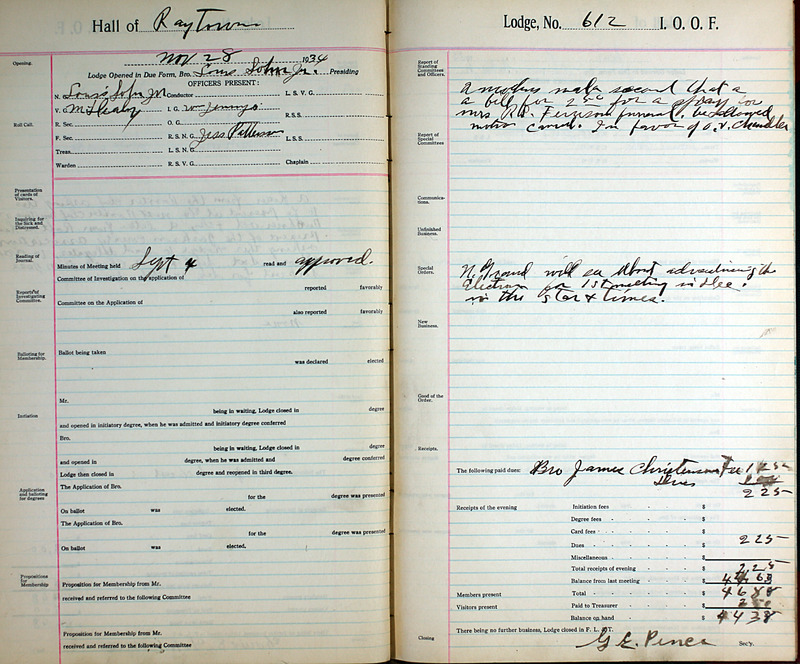 Hall of Raytown
Nov 28 1934
Opening.
Lodge Opened in Due Form, Bro. Louis John Jr. Presiding
OFFICERS PRESENT:
N. Louis John Jr Conductor L. S. V. G.
V. I. G. R.S.S.
Roll Call.
R. Sec. O. G.
F. Sec. R. S. N. G. Jess Patterson L.S.S.
Treas. L. S. N. G.
Warden R. S. V. G. Chaplain
Presentation of cards of Visitors.
Inquiring for the Sick and Distressed.
Reading of Journal.
Minutes of Meeting held Sept 4 read and approved.
Committee of Investigation on the application of
reported favorably
Reports of Investigating Committee.
Committee on the Application of
also reported favorably
Balloting for Membership.
Ballot being taken
was declared elected
Mr.
being in waiting, Lodge closed in degree
Initiation
and opened in initiatory degree, when he was admitted and initiatory degree conferred
Bro.
being in waiting, Lodge closed in degree
and opened in degree, when he was admitted and degree conferred
Lodge then closed in degree and reopened in third degree.
Application and balloting for degrees
The Application of Bro.
for the degree was presented
On ballot was elected.
The Application of Bro.
for the degree was presented
On ballot was elected.
Propositions for Membership
Proposition for Membership from Mr.
received and referred to the following Committee
Proposition for Membership from Mr.
received and referred to the following Committee
Lodge, No. 612 I. O. O. F.
Report of Standing Committees and Officers.
a motion made second that a
a bill for 250 for a for
mrs Ferguson funeral, be allowed
motion carried. In favor of O. V. Chandler
Report of Special Committees
Communications.
Unfinished Business.
Special Orders.
N. Grand will see about advertising the
Election for 1st meeting in Dec.
in the Star & times.
New Business.
Good of the Order.
Receipts.
The following paid dues: Bro James Christenson Fee 1 25
Dues
2 25
Receipts of the evening Initiation fees $
Degree fees $
Card fees $
Dues $ 2 25
Miscellaneous $
Total receipts of evening $ 2 25
Balance from last meeting $ 44 63
Members present Total $ 46 88
Visitors present Paid to Treasurer $ 2 50
Balance on hand $ 44 38
There being no further business, Lodge closed in F. L. & T.
Closing
Sec'y.